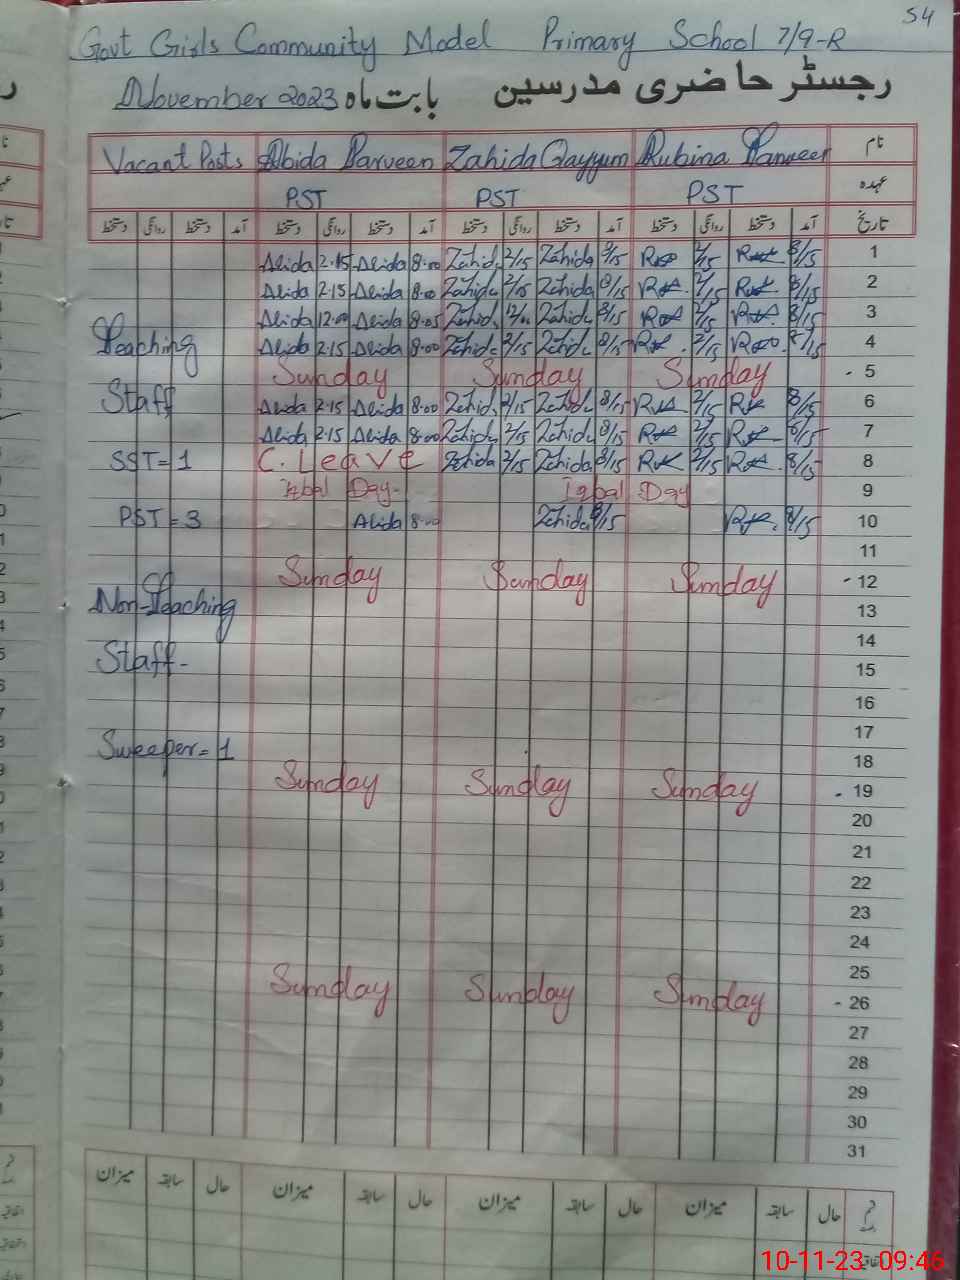 54
Govt Girls Community Model Primary School 7/9-R
رجسٹر حاضری مدرسین بابت ماہ November 2023
نام Rubina Parveen Zahida Qayyum Abida Parveen Vacant Posts
عہدہ PST PST PST
تاریخ آمد دستخط روانگی دستخط آمد دستخط روانگی دستخط آمد دستخط روانگی دستخط آمد دستخط روانگی دستخط
Abida 2.15 Abida 8.00 Zahida 2/15 Zahida 8/15 2/15 8/15 1
Abida 2.15 Abida 8.00 Zahida 2/15 Zahida 8/15 2/15 8/15 2
Abida 12.00 Abida 8.05 Zahida 12/00 Zahida 8/15 2/15 8/15 3
Teaching Abida 2.15 Abida 8.00 Zahida 2/15 Zahida 8/15 2/15 8/15 4
Sunday Sunday Sunday - 5
Staff Abida 2.15 Abida 8.00 Zahida 2/15 Zahida 8/15 2/15 8/15 6
Abida 2.15 Abida 8.00 Zahida 2/15 Zahida 8/15 2/15 8/15 7
SST = 1 C. Leave Zahida 2/15 Zahida 8/15 2/15 8/15 8
Iqbal Day- Iqbal Day 9
PST = 3 Abida 8.00 Zahida 8/15 8/15 10
11
Sunday Sunday Sunday - 12
Non-Teaching 13
14
Staff- 15
16
17
Sweeper = 1 18
Sunday Sunday Sunday - 19
20
21
22
23
24
25
Sunday Sunday Sunday - 26
27
28
29
30
31
حال سابقہ میزان حال سابقہ میزان حال سابقہ میزان
10-11-23 09:46